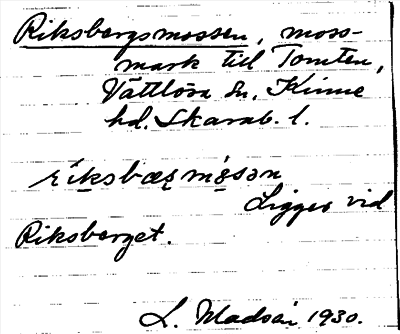 Riksbergsmossen, moss-
mark till Tomten,
Vättlösa sn, Kinne
hd. Skarab. l.
ríksbærmos̀ən
Ligger vid
Riksberget.
L. 1930.